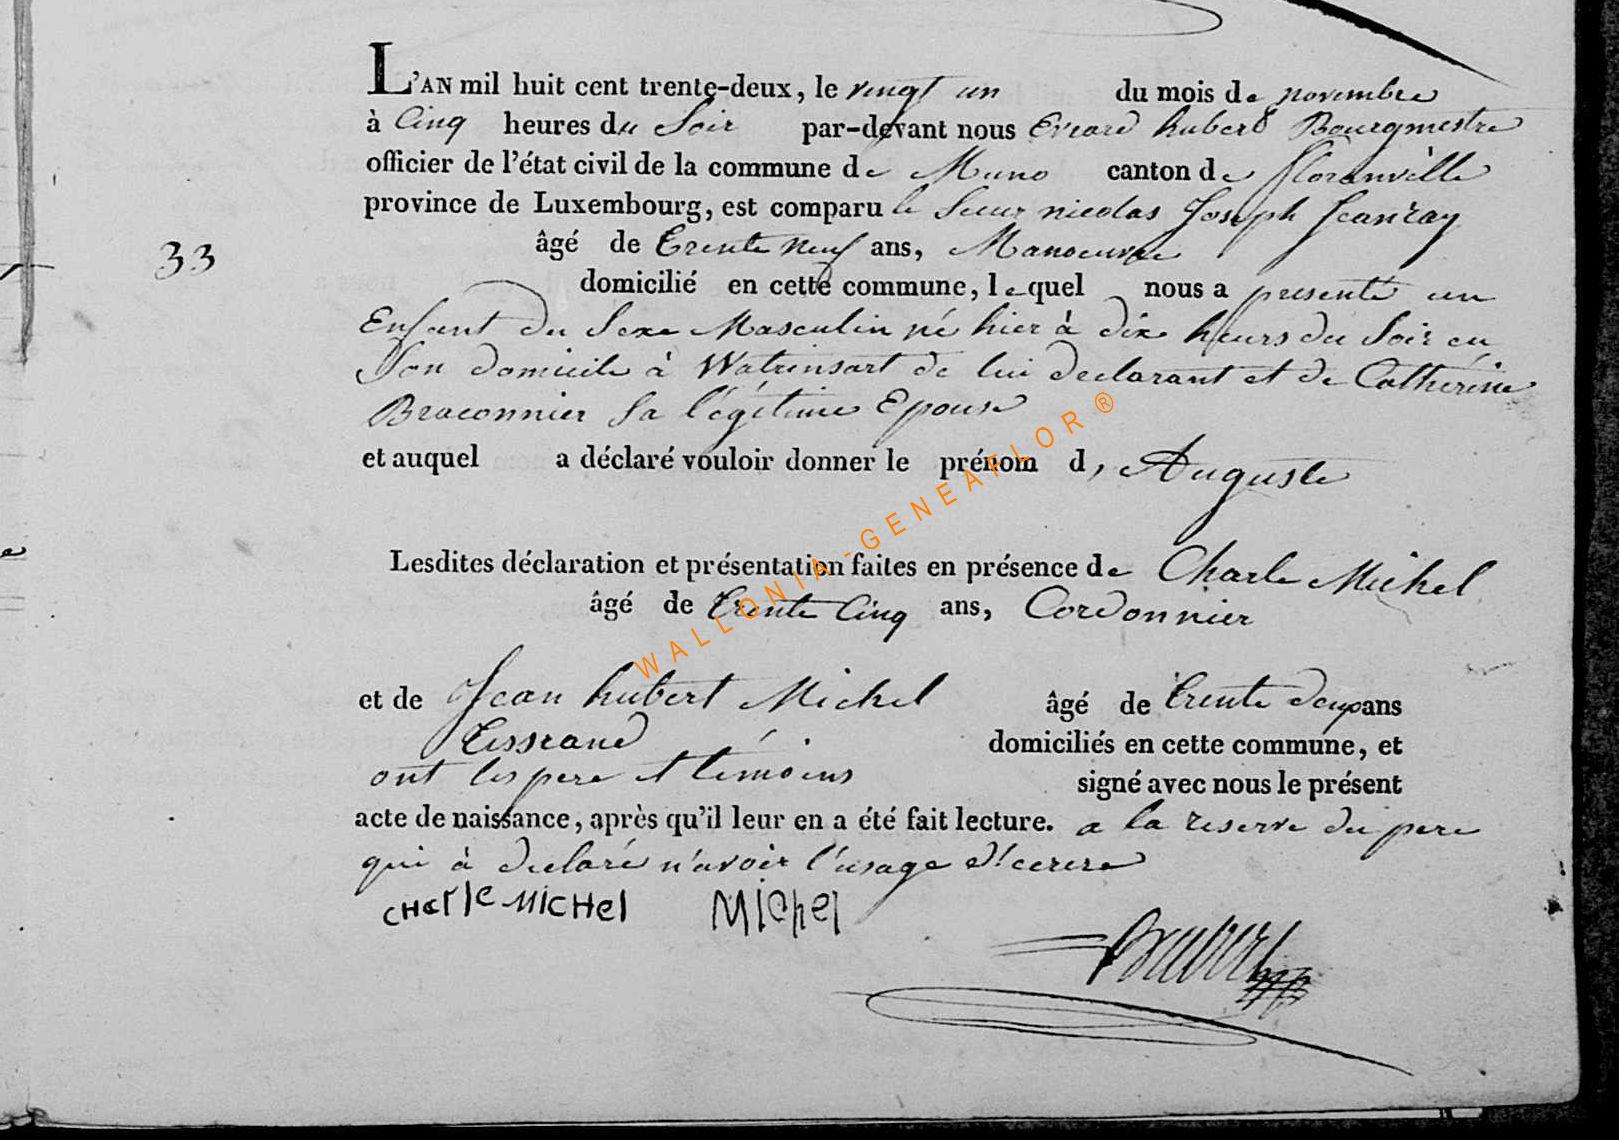 L'AN mil huit cent trente-deux, le vingt un du mois de novembre
à Cinq heures du Soir par-devant nous Evrard hubert Bourgmestre
officier de l'état civil de la commune de Muno canton de florenville
province de Luxembourg, est comparu le Sieur nicolas Joseph Jeanray
33
âgé de trente neuf ans, Manoeuvre
domicilié en cette commune, lequel nous a presenté un
Enfant du Sexe Masculin né hier à dix heurs du Soir en
Son domicile à Watrinsart de lui declarant et de Catherine
Braconnier Sa légitime Epouse
et auquel a déclaré vouloir donner le prénom d, Auguste
Lesdites déclaration et présentation faites en présence de Charle Michel
âgé de trente Cinq ans, Cordonnier
et de Jean hubert Michel âgé de trente deux ans
Tisserand domiciliés en cette commune, et
ont les pere et témoins signé avec nous le présent
acte de naissance, après qu'il leur en a été fait lecture. a la reserve du pere
qui à declaré n'avoir l'usage d'ecrire
CHarle MICHel Michel
WALLONIA-GENEAFLOR ®